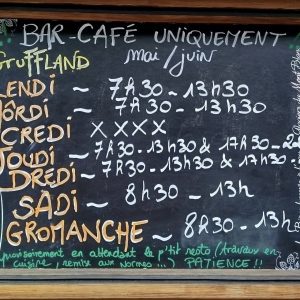 BAR-CAFÉ UNIQUEMENT
GRUFFLAND mai/juin
LENDI ~ 7h30-13h30
MÔRDI ~ 7h30-13h30
CREDI XXXX
JOUDI ~ 7h30-13h30 & 17h30-
DRÉDI ~ 7h30-13h30 & 17h30
SÂDI ~ 8h30-13h
GROMANCHE ~ 8h30-13h
provisoirement en attendant le p'tit resto (travaux en
cuisine, remise aux normes...) PATIENCE!!